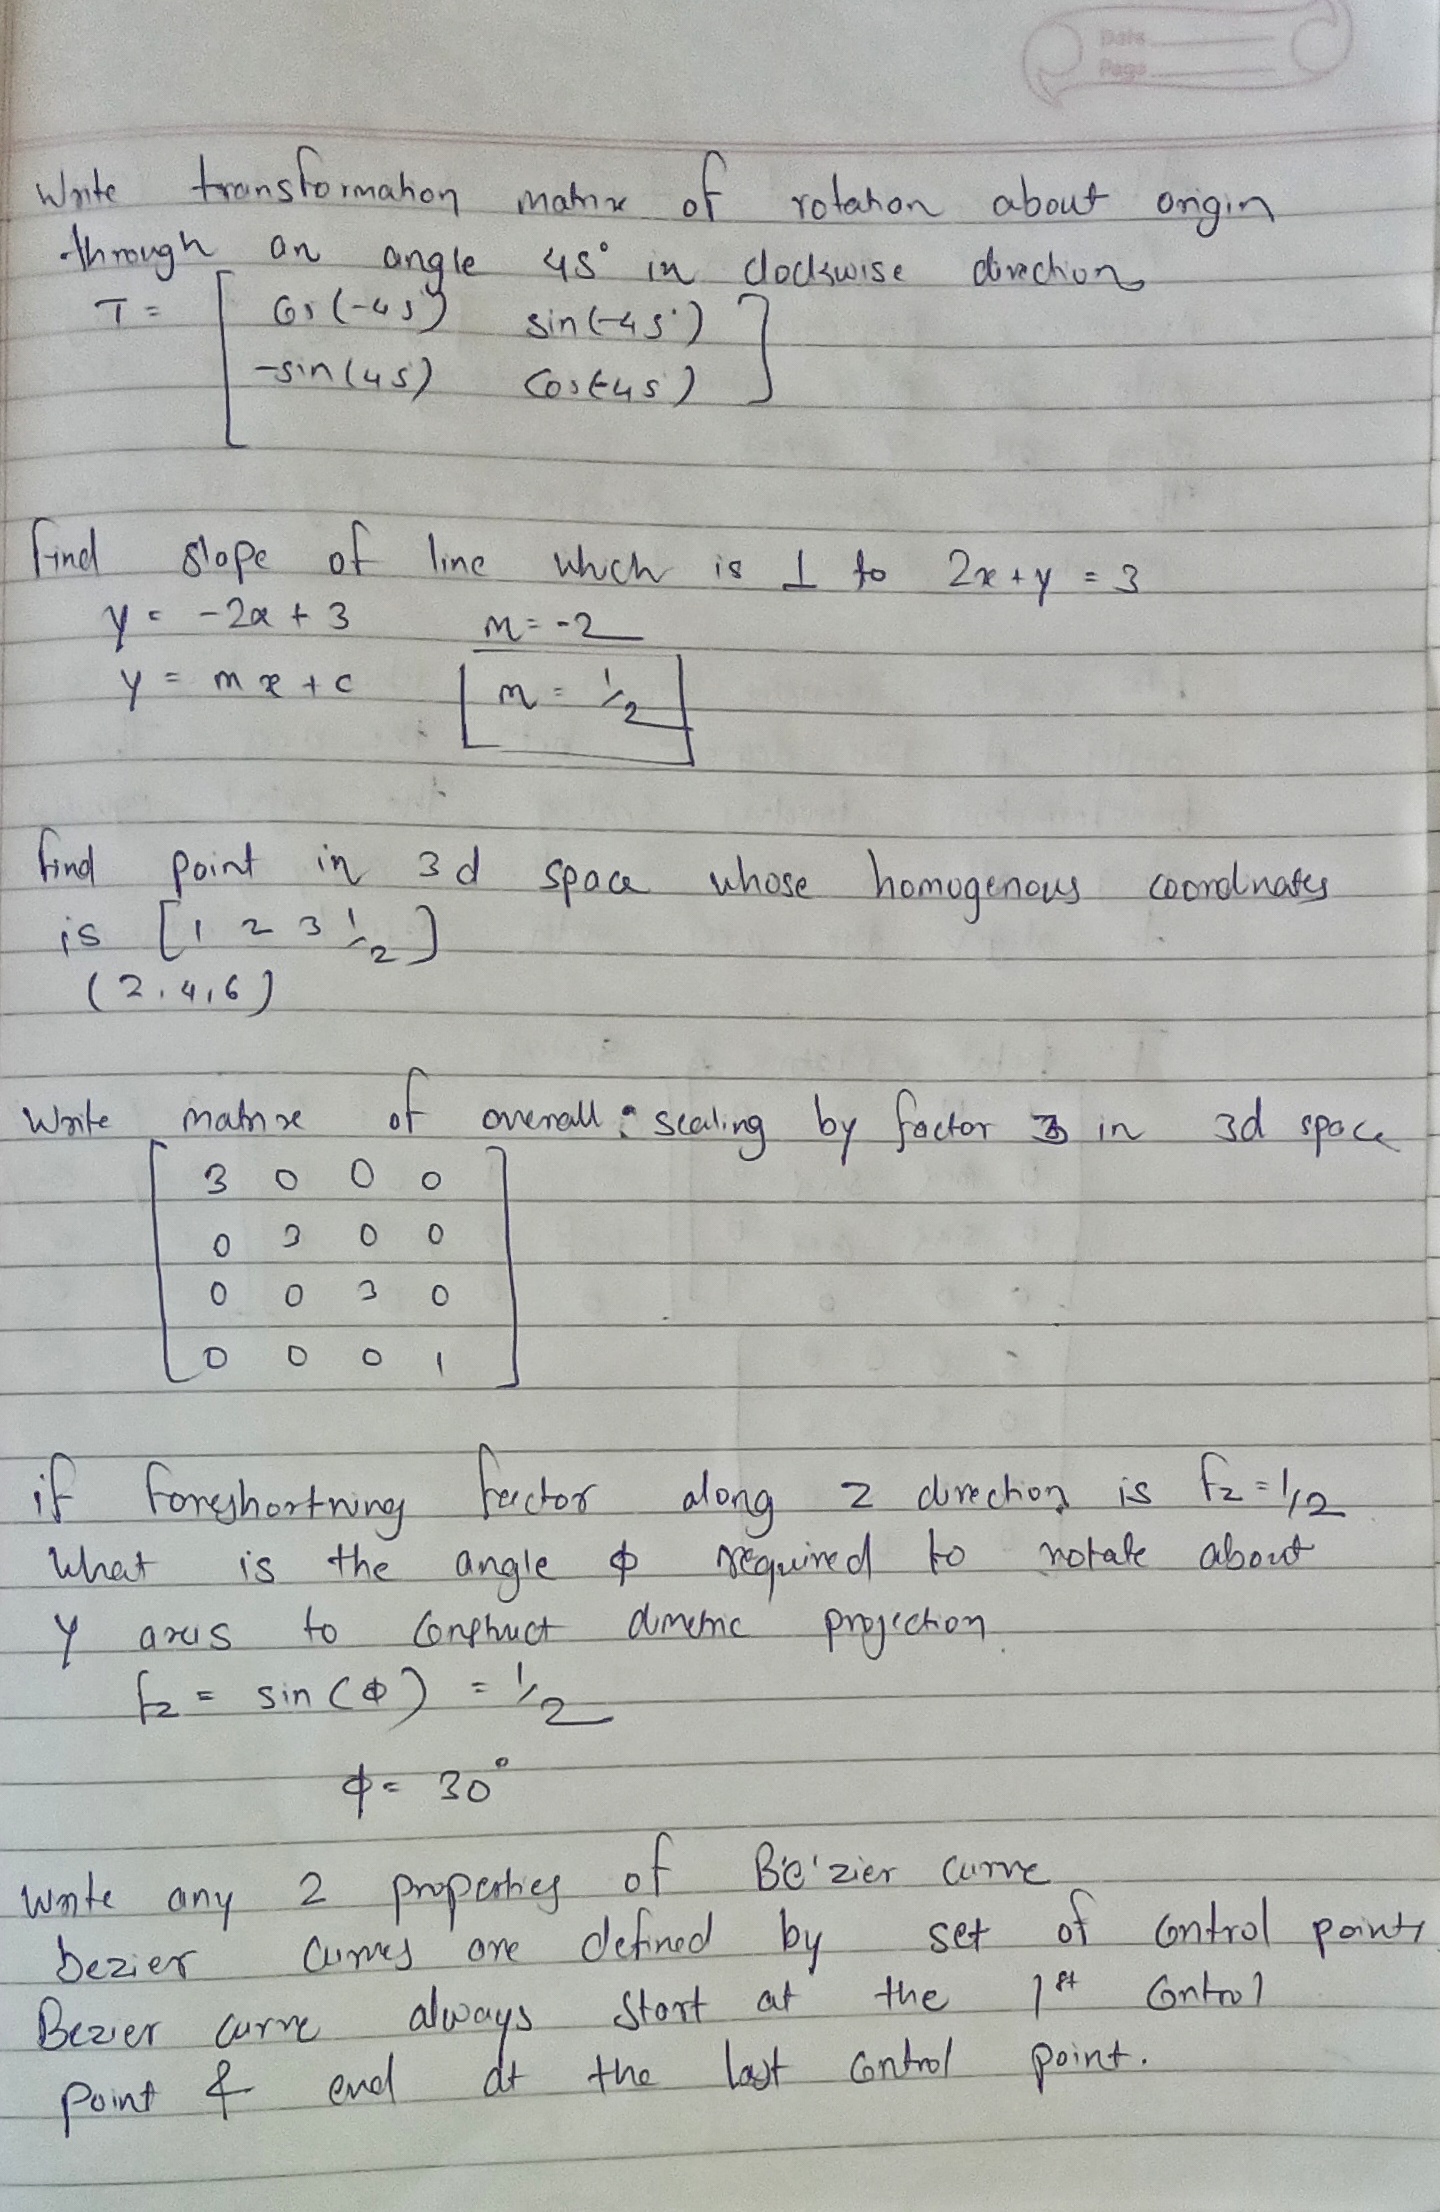 Date
Page
Write transformation matrix of rotation about origin
through an angle 45° in clockwise direction
T = [ Cos(-45°) sin(-45°)
-sin(45) Cos(-45) ]
find slope of line which is ⊥ to 2x + y = 3
y = -2x + 3 m = -2
y = mx + c m = 1/2
find point in 3d space whose homogenous coordinates
is [1 2 3 1/2]
(2,4,6)
Write matrix of overall scaling by factor 3 in 3d space
3 0 0 0
0 3 0 0
0 0 3 0
0 0 0 1
if foreshortning factor along z direction is fz = 1/2
What is the angle ϕ required to rotate about
y axis to construct dimetric projection.
fz = sin(ϕ) = 1/2
ϕ = 30°
Write any 2 properties of Be'zier curve
bezier curves are defined by set of control points
Bezier curve always start at the 1st control
point & end at the last control point.